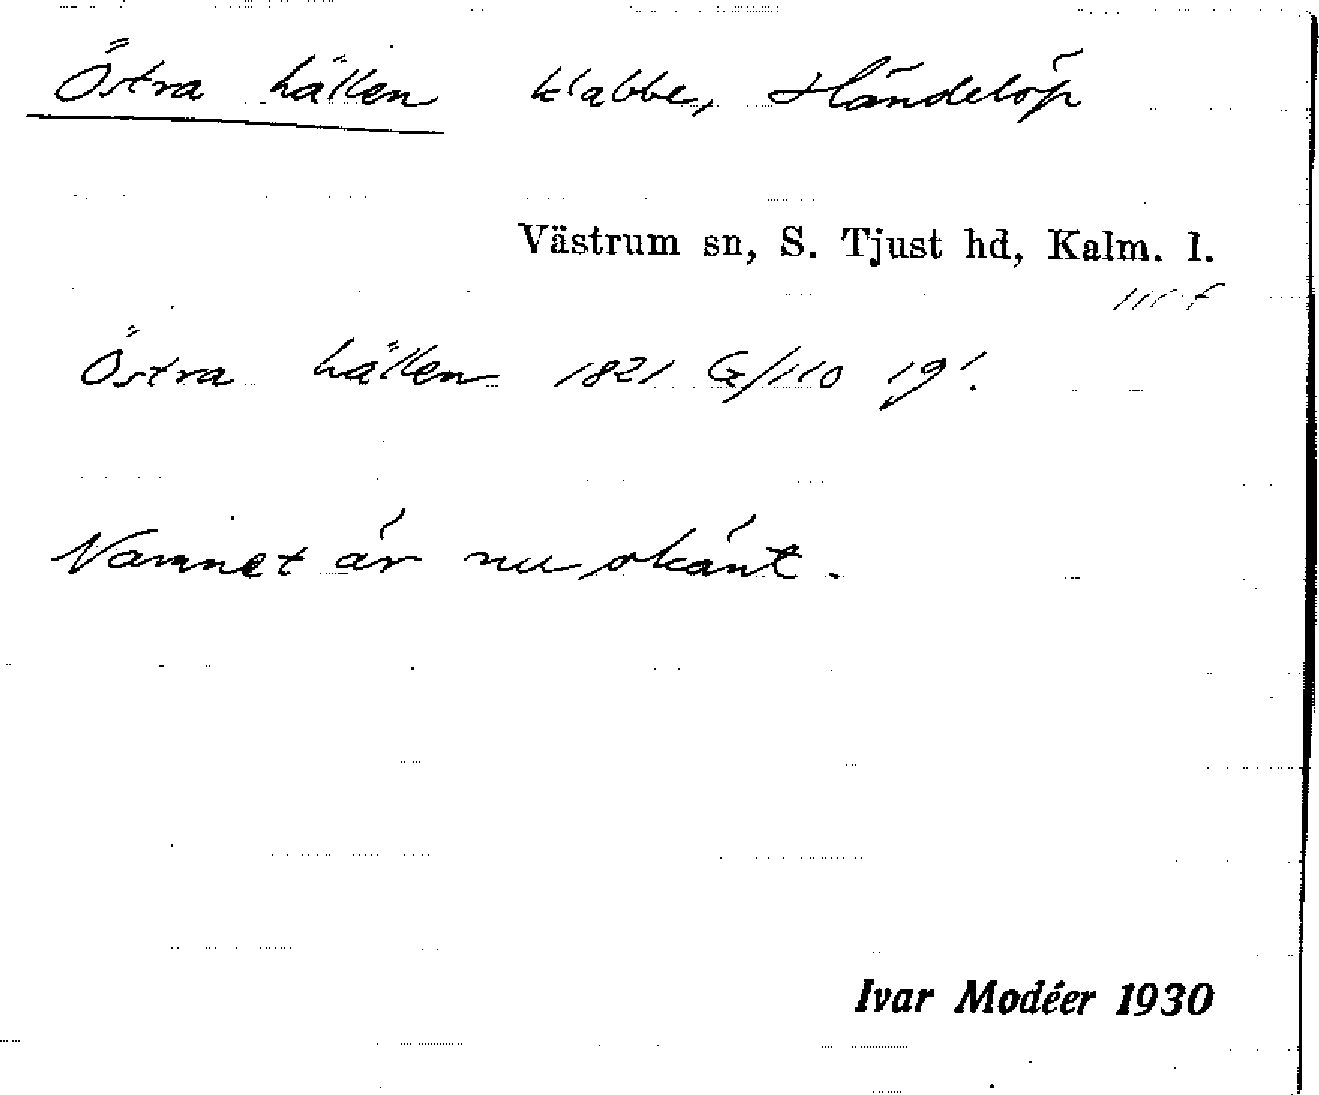 Östra hällen klabbe, Händelöp
Västrum sn, S. Tjust hd, Kalm. l.
Östra hällen 1821 G/110 19¹.
Namnet är nu okänt.
Ivar Modéer 1930